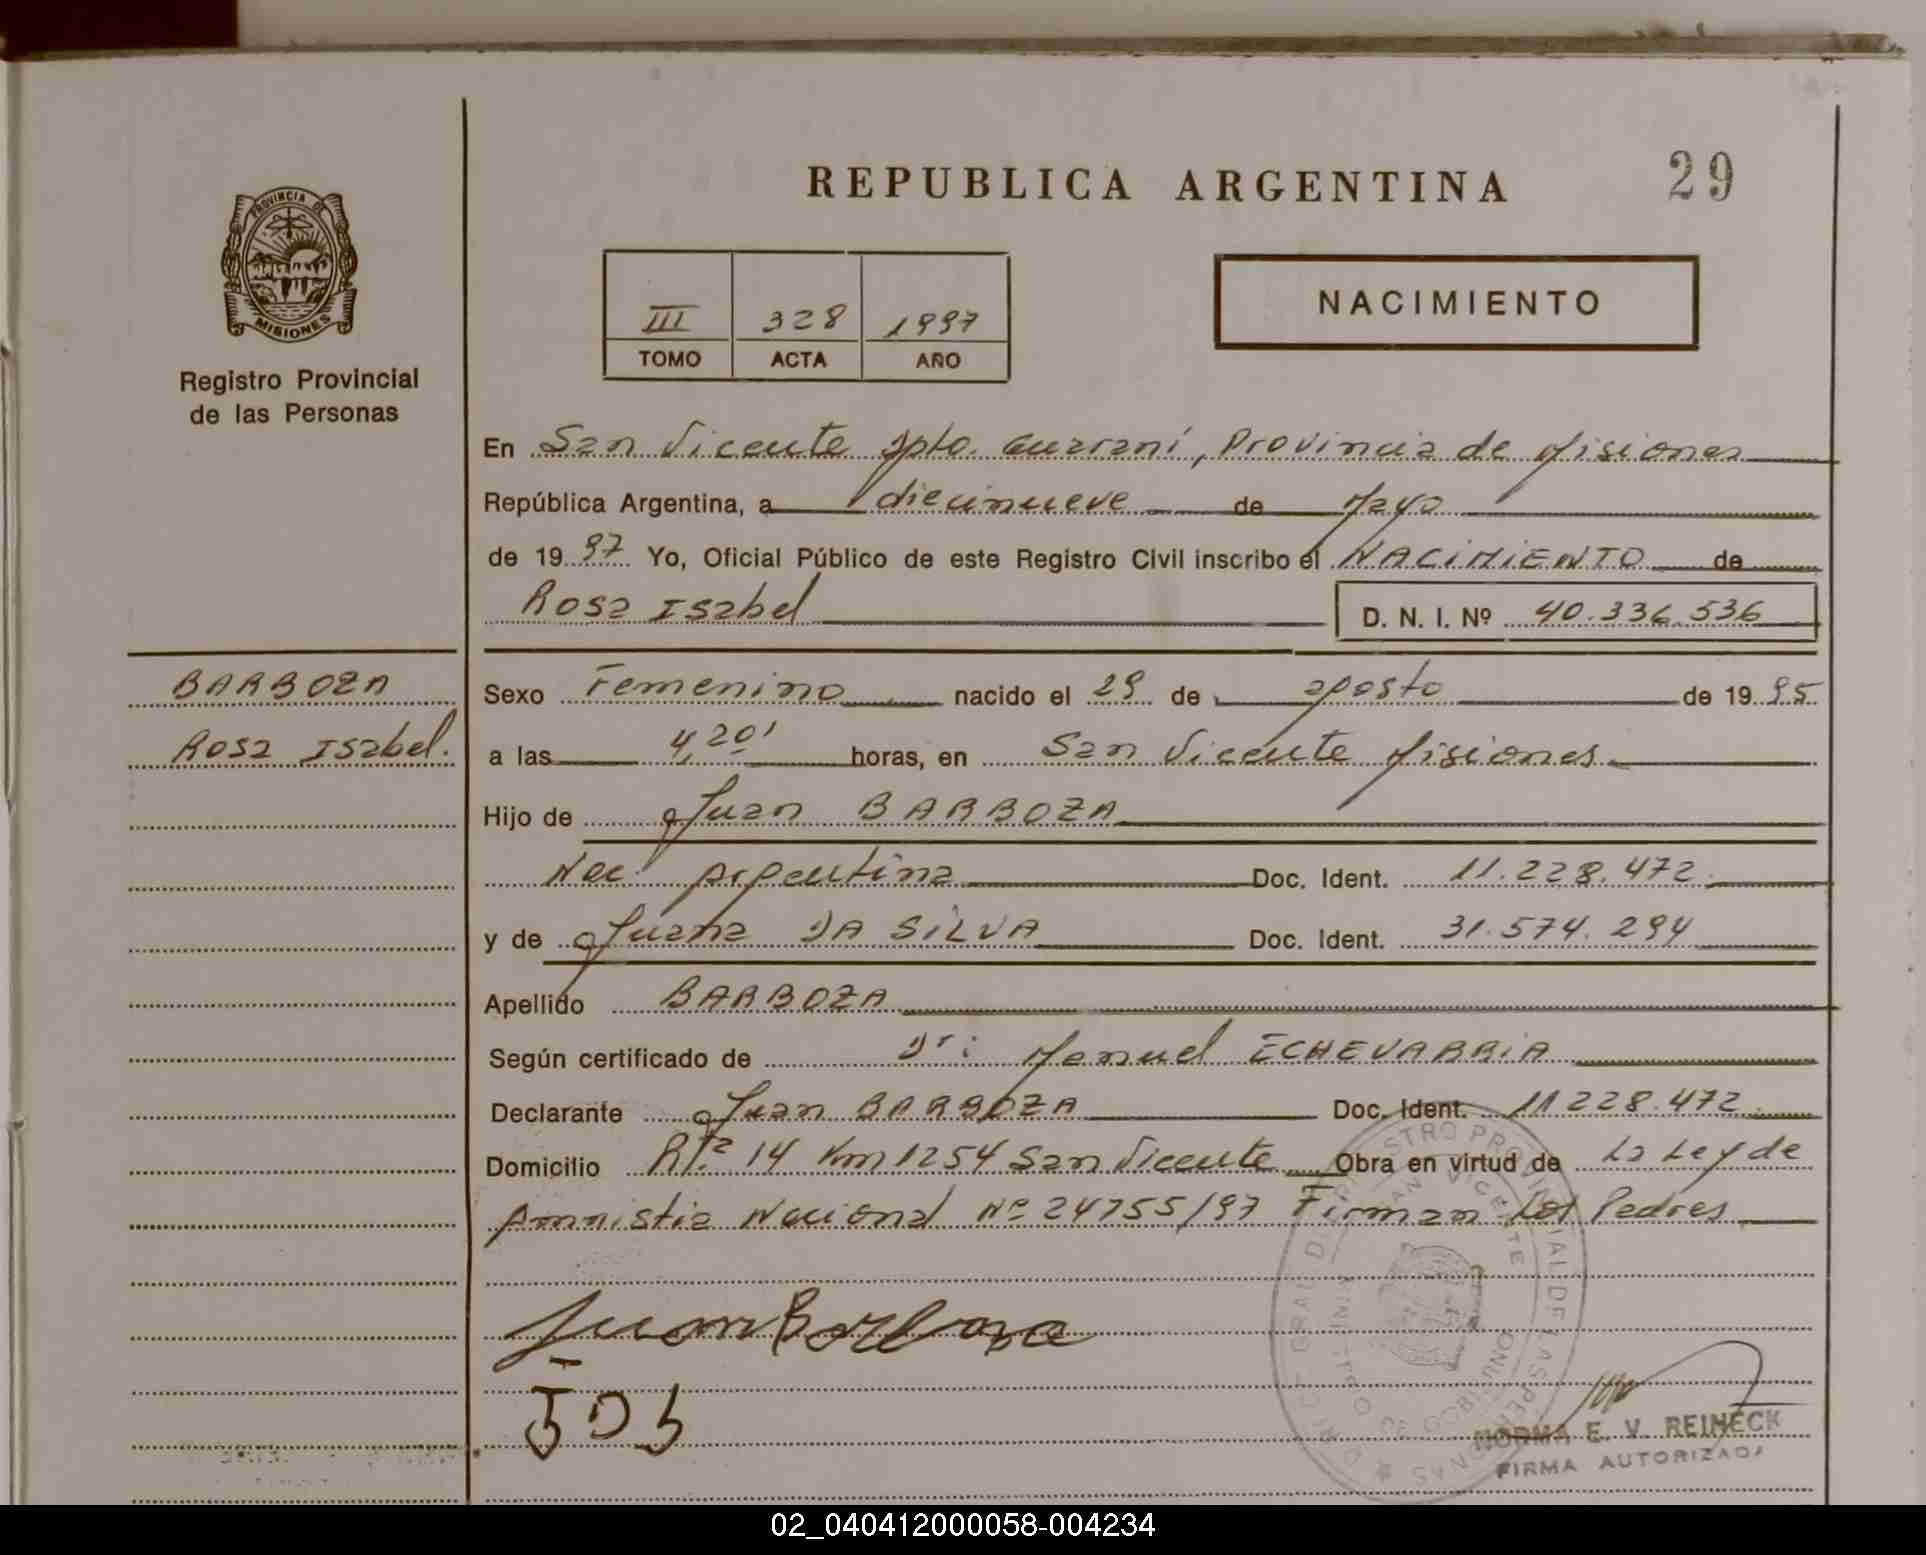 29
REPUBLICA ARGENTINA
PROVINCIA DE
MISIONES
Registro Provincial
de las Personas
III 328 1997
TOMO ACTA AÑO
NACIMIENTO
En San Vicente Dpto. Guarani, Provincia de Misiones
República Argentina, a diecinueve de Mayo
de 19 97 Yo, Oficial Público de este Registro Civil inscribo el NACIMIENTO de
Rosa Isabel D. N. I. Nº 40.336.536
BARBOZA
Rosa Isabel.
Sexo Femenino nacido el 29 de agosto de 19 95
a las 4,20' horas, en San Vicente Misiones
Hijo de Juan BARBOZA
Nac. Argentina Doc. Ident. 11.228.472
y de Juana DA SILVA Doc. Ident. 31.574.294
Apellido BARBOZA
Según certificado de Dr: Manuel ECHEVARRIA
Declarante Juan BARBOZA Doc. Ident. 11.228.472
Domicilio Rta 14 Km 1254 San Vicente Obra en virtud de La Ley de
Amnistia Nacional Nº 24755/97 Firman Los Padres
Juan Barboza
JDS
NORMA E. V. REINECK
FIRMA AUTORIZADA
02_040412000058-004234